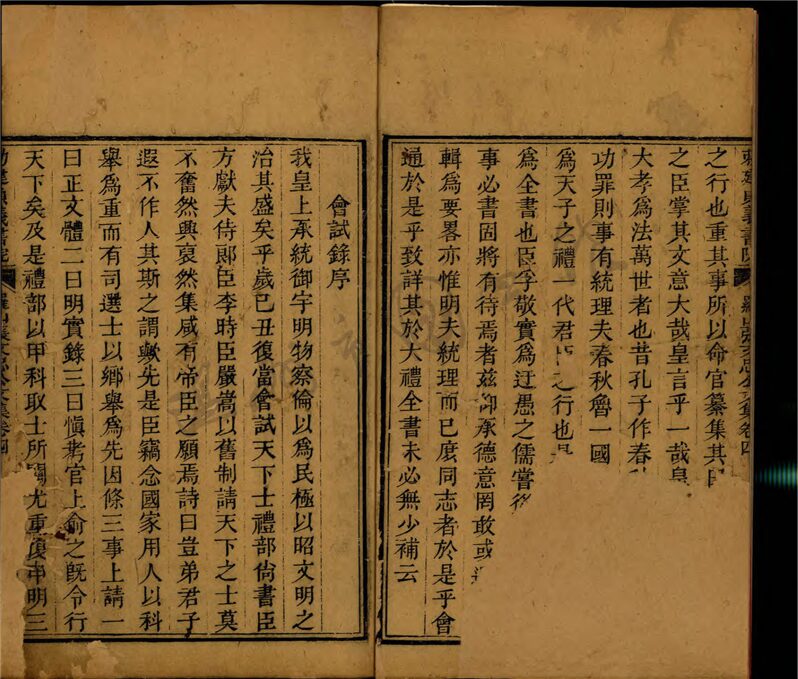 之行也重其事所以命官纂集其
之臣掌其文意大哉皇言乎一哉皇
大孝為法萬世者也昔孔子作春
功罪則事有統理夫春秋魯一國
為天子之禮一代君 之行也
為全書也臣孚敬實為迂愚之儒嘗
事必書固將有待焉者茲仰承德意罔敢或
輯為要畧亦惟明夫統理而已庶同志者於是乎會
通於是乎致詳其於大禮全書未必無少補云
會試錄序
我皇上承統御宇明物察倫以為民極以昭文明之
治其盛矣乎歲己丑復當會試天下士禮部尙書臣
方獻夫侍郞臣李時臣嚴嵩以舊制請天下之士莫
不奮然興裒然集咸有帝臣之願焉詩曰豈弟君子
遐不作人其斯之謂歟先是臣竊念國家用人以科
舉為重而有司選士以鄉舉為先因條三事上請一
曰正文體二曰明實錄三曰愼考官上俞之旣令行
天下矣及是禮部以甲科取士所關尤重復申明三